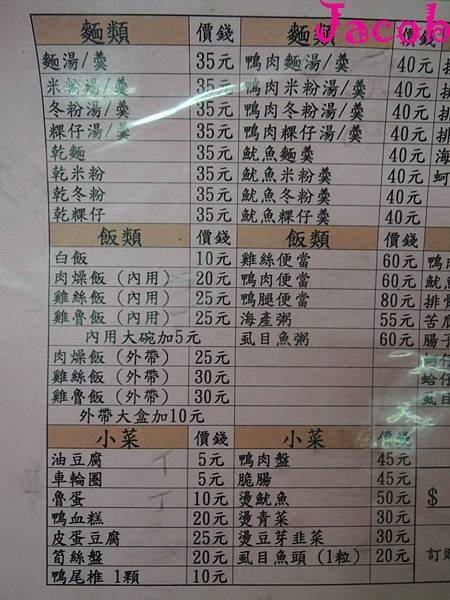 Jacob
麵類 價錢 麵類 價錢
麵湯/羹 35元 鴨肉麵湯/羹 40元 排
米粉湯/羹 35元 鴨肉米粉湯/羹 40元 排
冬粉湯/羹 35元 鴨肉冬粉湯/羹 40元 排
粿仔湯/羹 35元 鴨肉粿仔湯/羹 40元 排
乾麵 35元 魷魚麵羹 40元 海
乾米粉 35元 魷魚米粉羹 40元 蚵
乾冬粉 35元 魷魚冬粉羹 40元
乾粿仔 35元 魷魚粿仔羹 40元
飯類 價錢 飯類 價錢
白飯 10元 雞絲便當 60元 鴨
肉燥飯(內用) 20元 鴨肉便當 60元 魷
雞絲飯(內用) 25元 鴨腿便當 80元 排骨
雞魯飯(內用) 25元 海產粥 55元 苦瓜
內用大碗加5元 虱目魚粥 60元 腸子
肉燥飯(外帶) 25元 蚵仔
雞絲飯(外帶) 30元 蛤仔
雞魯飯(外帶) 30元 虱目
外帶大盒加10元
小菜 價錢 小菜 價錢
油豆腐 5元 鴨肉盤 45元
車輪圈 5元 脆腸 45元
魯蛋 10元 燙魷魚 50元 $
鴨血糕 20元 燙青菜 30元
皮蛋豆腐 25元 燙豆芽韭菜 30元
筍絲盤 20元 虱目魚頭(1粒) 20元 訂
鴨尾椎 1顆 10元